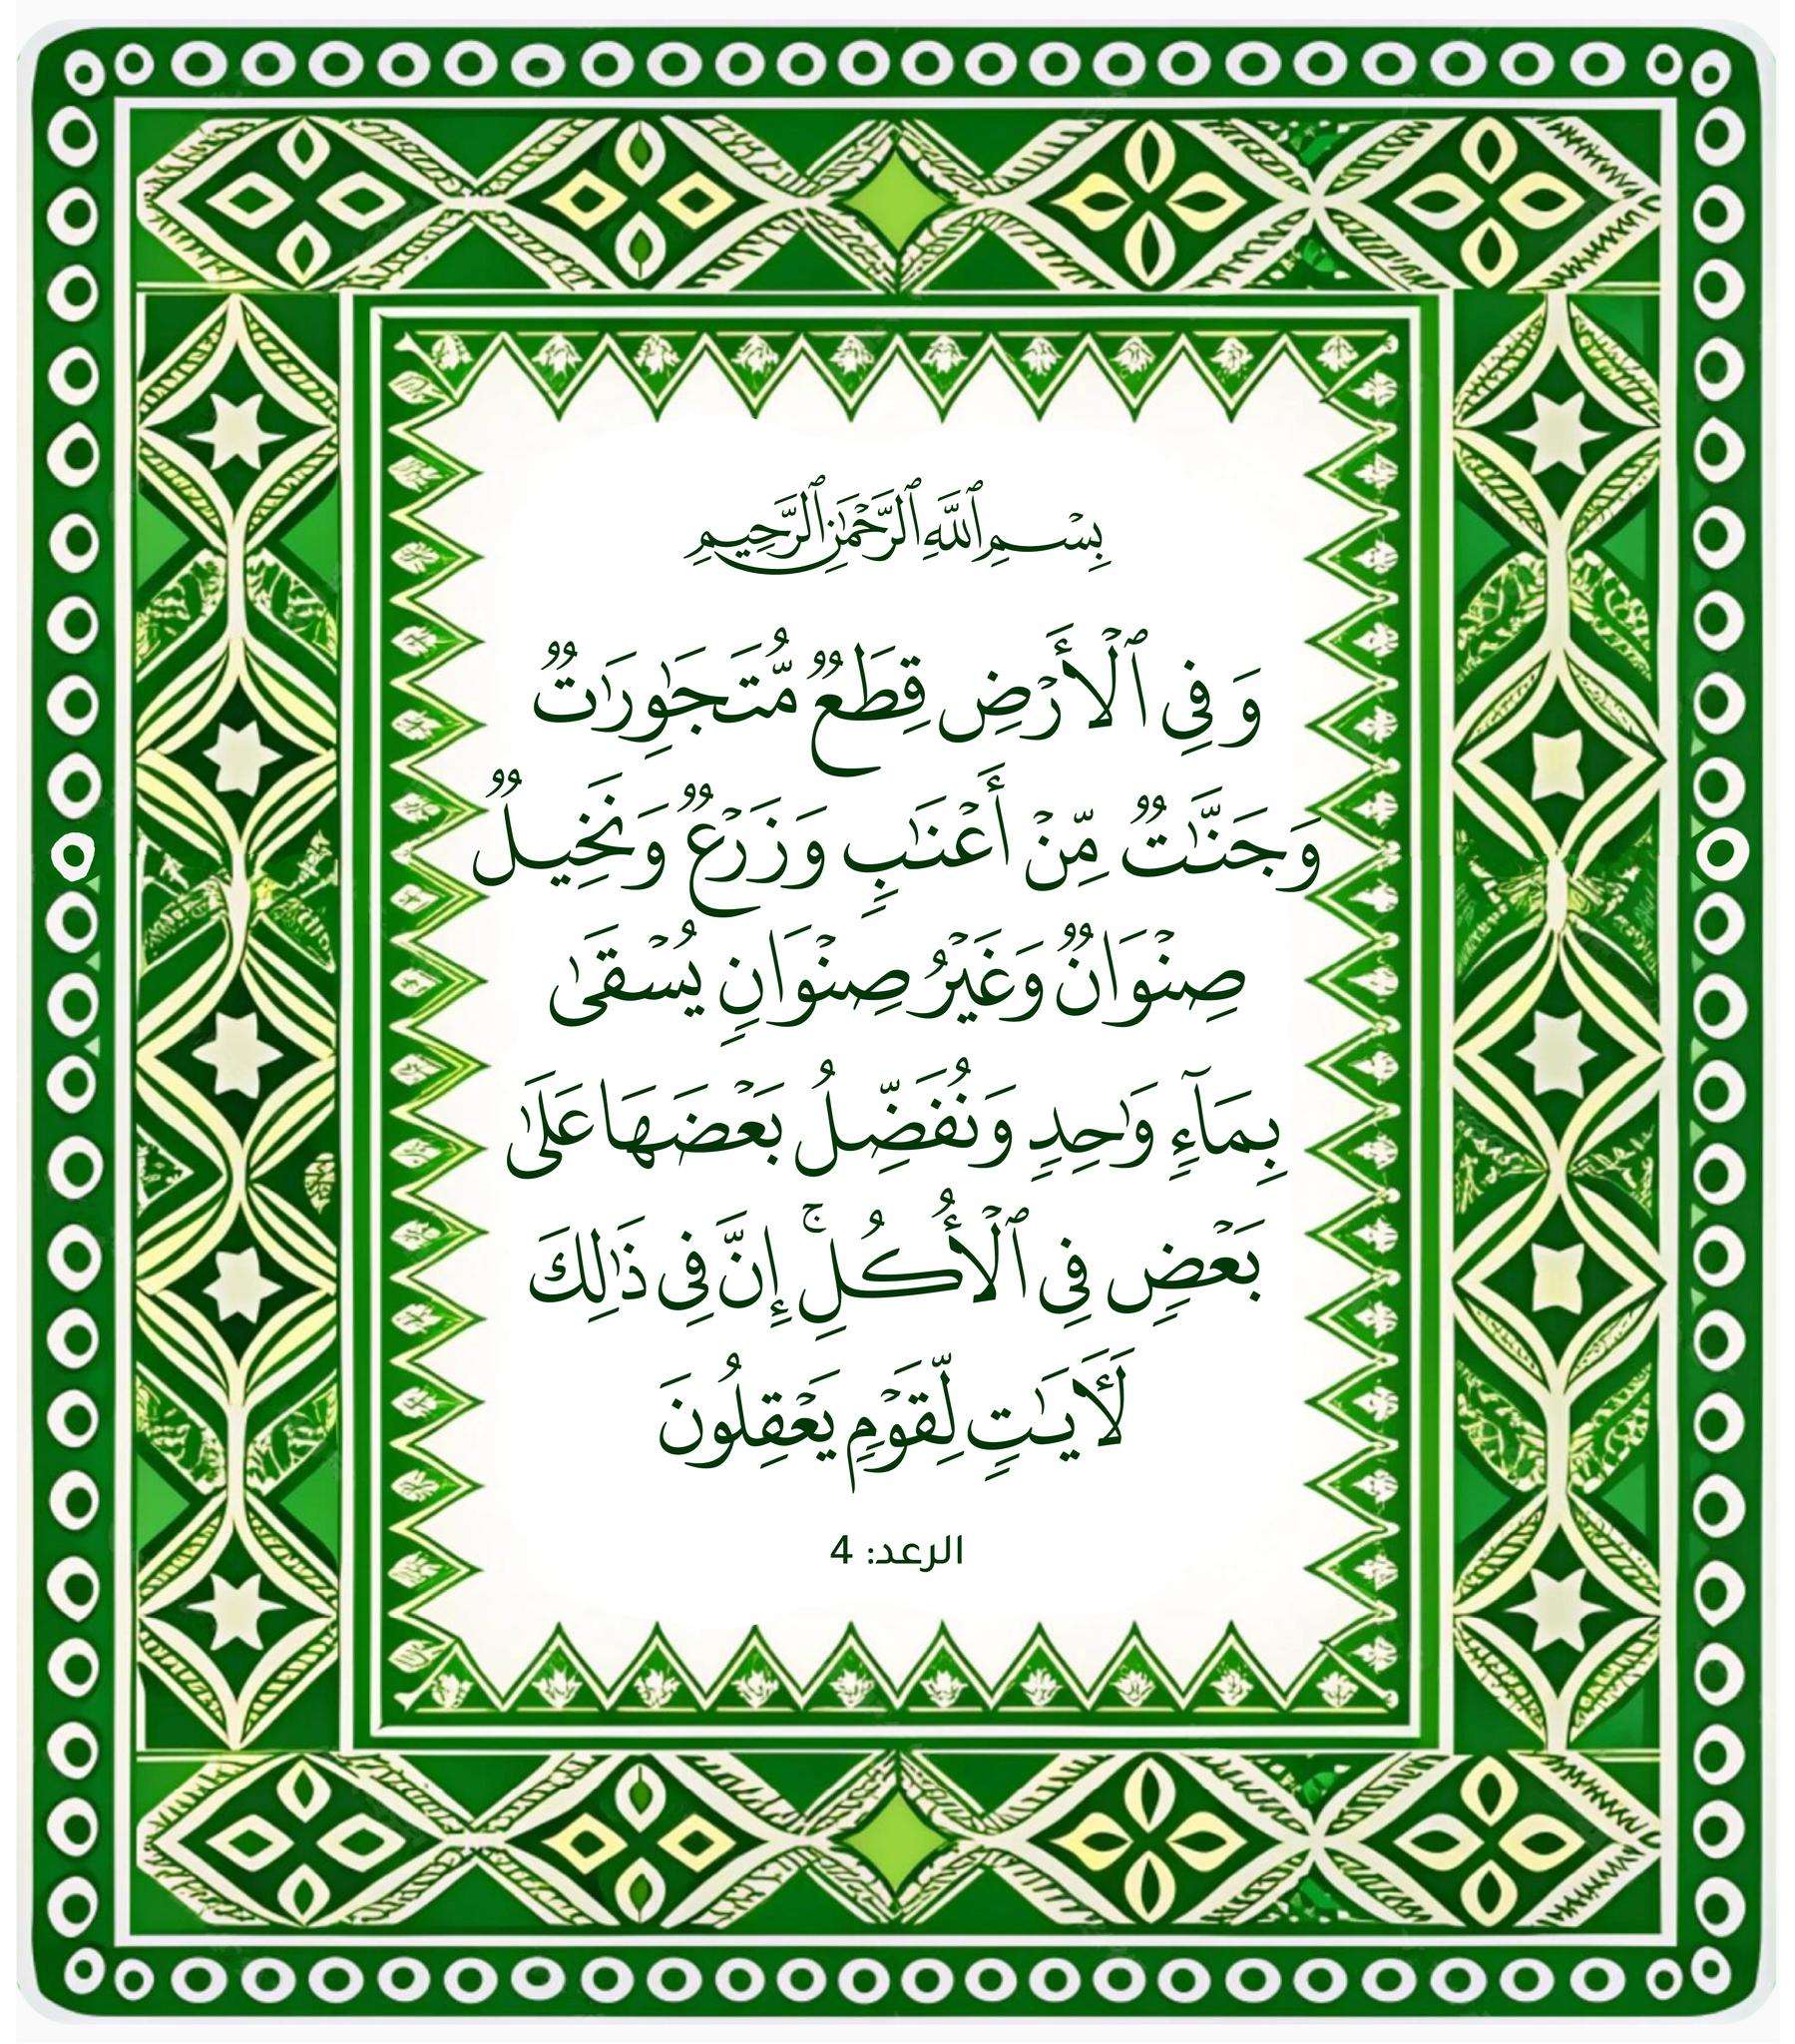 بِسْمِ ٱللَّهِ ٱلرَّحْمَٰنِ ٱلرَّحِيمِ
وَفِى ٱلْأَرْضِ قِطَعٌ مُّتَجَٰوِرَٰتٌ
وَجَنَّٰتٌ مِّنْ أَعْنَٰبٍ وَزَرْعٌ وَنَخِيلٌ
صِنْوَانٌ وَغَيْرُ صِنْوَانٍ يُسْقَىٰ
بِمَآءٍ وَٰحِدٍ وَنُفَضِّلُ بَعْضَهَا عَلَىٰ
بَعْضٍ فِى ٱلْأُكُلِ ۚ إِنَّ فِى ذَٰلِكَ
لَـَٔايَٰتٍ لِّقَوْمٍ يَعْقِلُونَ
الرعد: 4